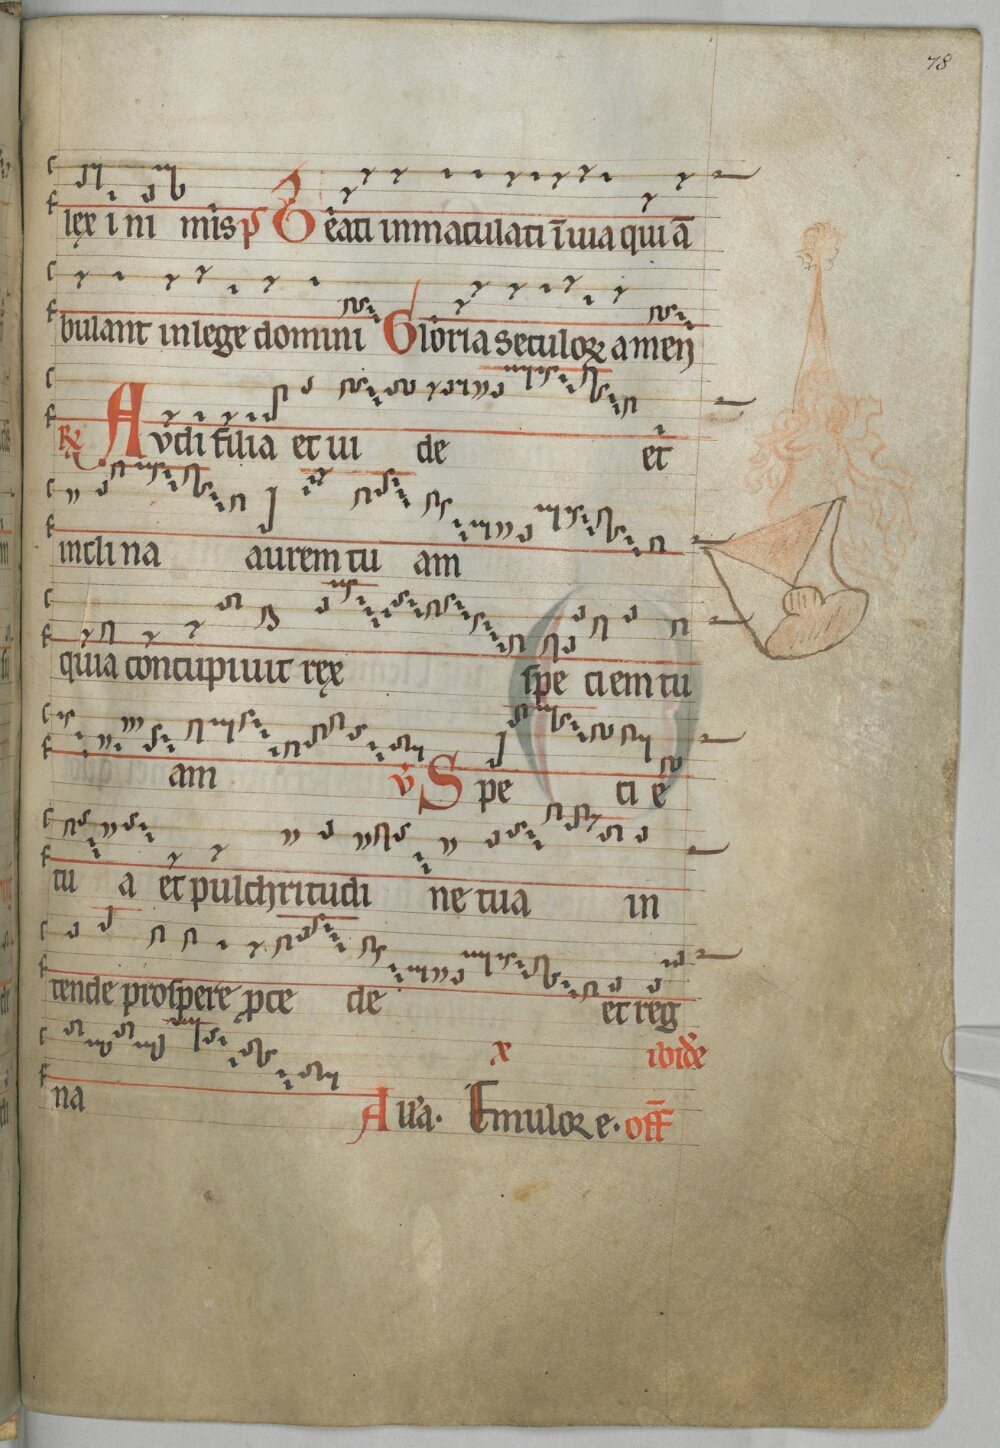 78
lęx i ni mis ps Beati inmaculati ī uia qui ā
bulant in lege domini Gloria seculoꝝ amen
℞ Avdi filia et ui de et
inclina aurem tu am
quia concupiuit ręx spe ciem tu
am v̊ Spe ci e
tu a et pulchritudi ne tua in
tende prospere ꝓce de et reg
x ibidē
na Alľa. Emuloꝝ e. off̄